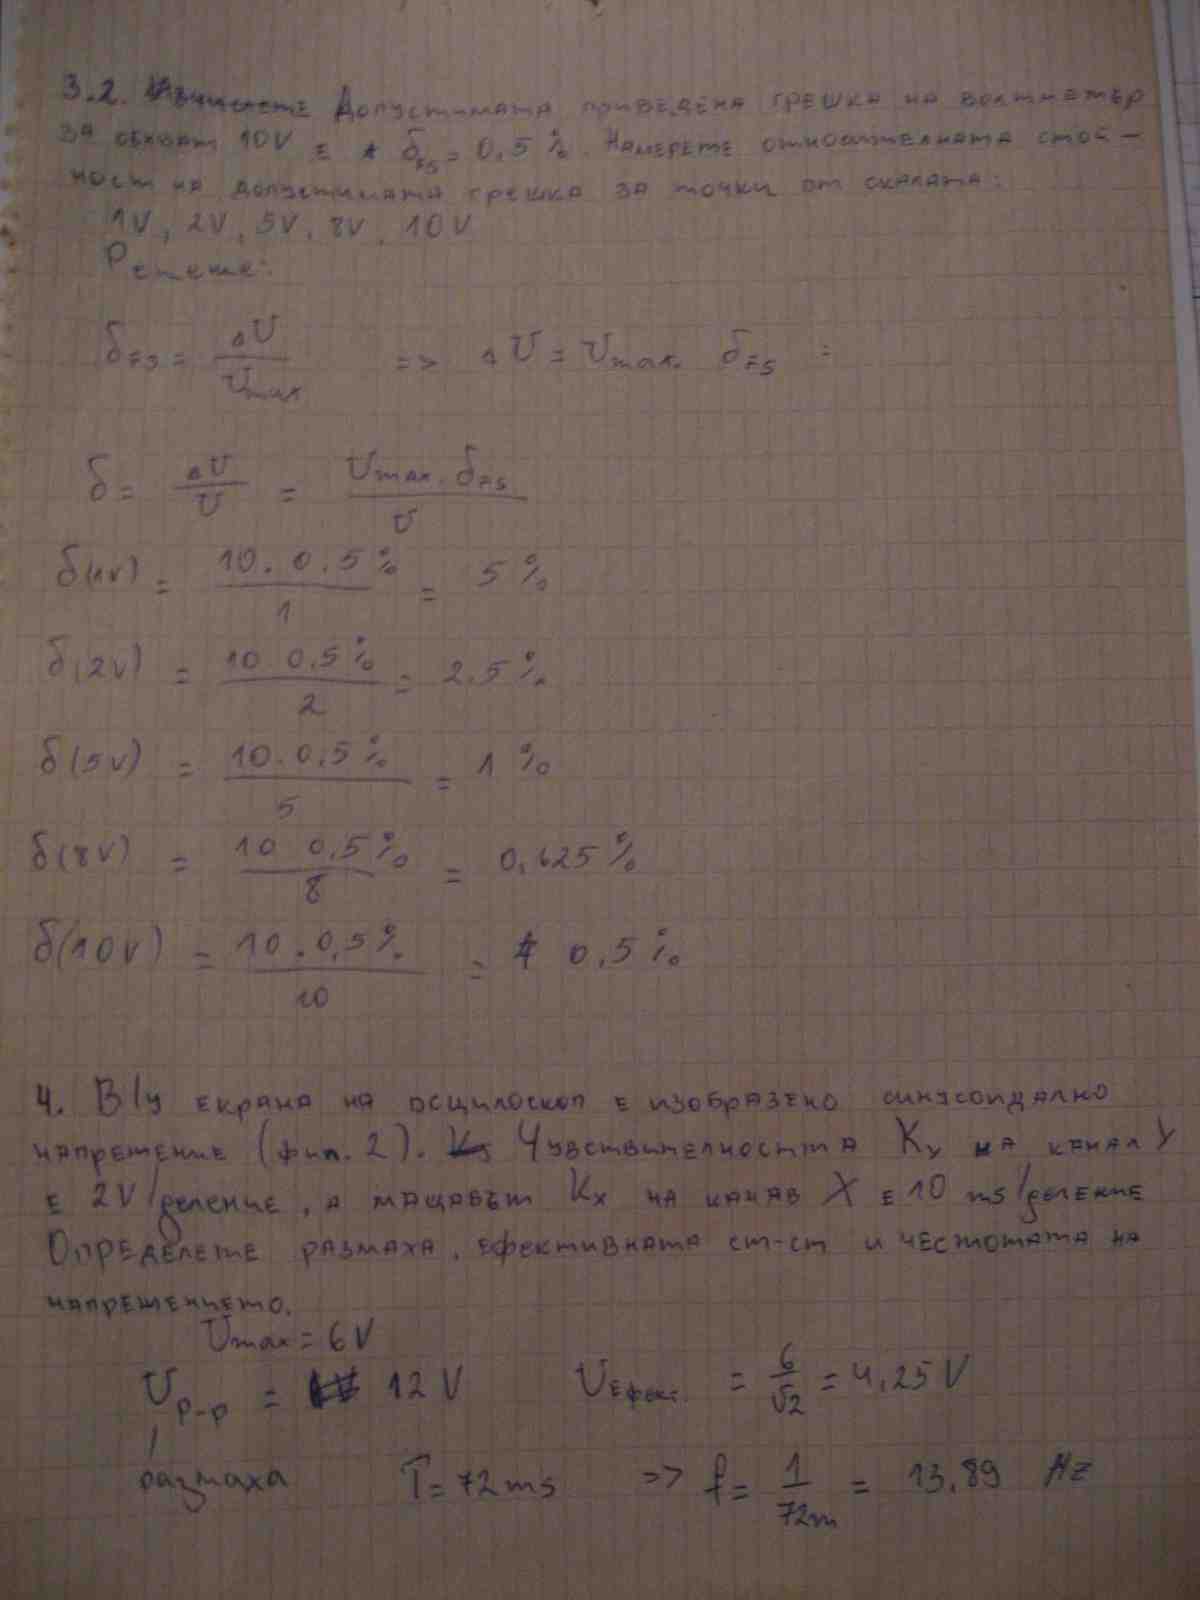 3.2. Допустимата приведена грешка на волтметър
за обхват 10V е δFS = 0,5 %. Намерете относителната стой-
ност на допустимата грешка за точки от скалата:
1V, 2V, 5V, 8V, 10V
Решение:
δFS = ΔU / Umax => ΔU = Umax. δFS =
δ = ΔU / U = Umax. δFS / U
δ(1V) = 10. 0,5% / 1 = 5 %
δ(2V) = 10 0,5% / 2 = 2,5 %
δ(5V) = 10. 0,5% / 5 = 1 %
δ(8V) = 10 0,5% / 8 = 0,625 %
δ(10V) = 10. 0,5% / 10 = 0,5 %
4. В/у екрана на осцилоскоп е изобразено синусоидално
напрежение (фиг. 2). Чувствителността Ky на канал Y
е 2V/деление, а мащабът Kx на канав X е 10 ms/деление
Определете размаха, ефективната ст-ст и честотата на
напрежението.
Umax = 6V
Up-p = 12V Uефект. = 6 / √2 = 4,25 V
размаха T = 72 ms => f = 1 / 72m = 13,89 Hz